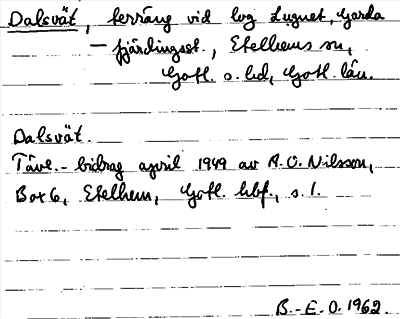 Dalsvät, terräng vid lzg Lugnet, Garda
- fjärdingsst., Etelhems sn,
Gotl. s. hd, Gotl. län.
Dalsvät.
Tävl.- bidrag april 1949 av A.O. Nilsson,
Box 6, Etelhem, Gotl. hbf., s. 1.
B.-E.O. 1962.